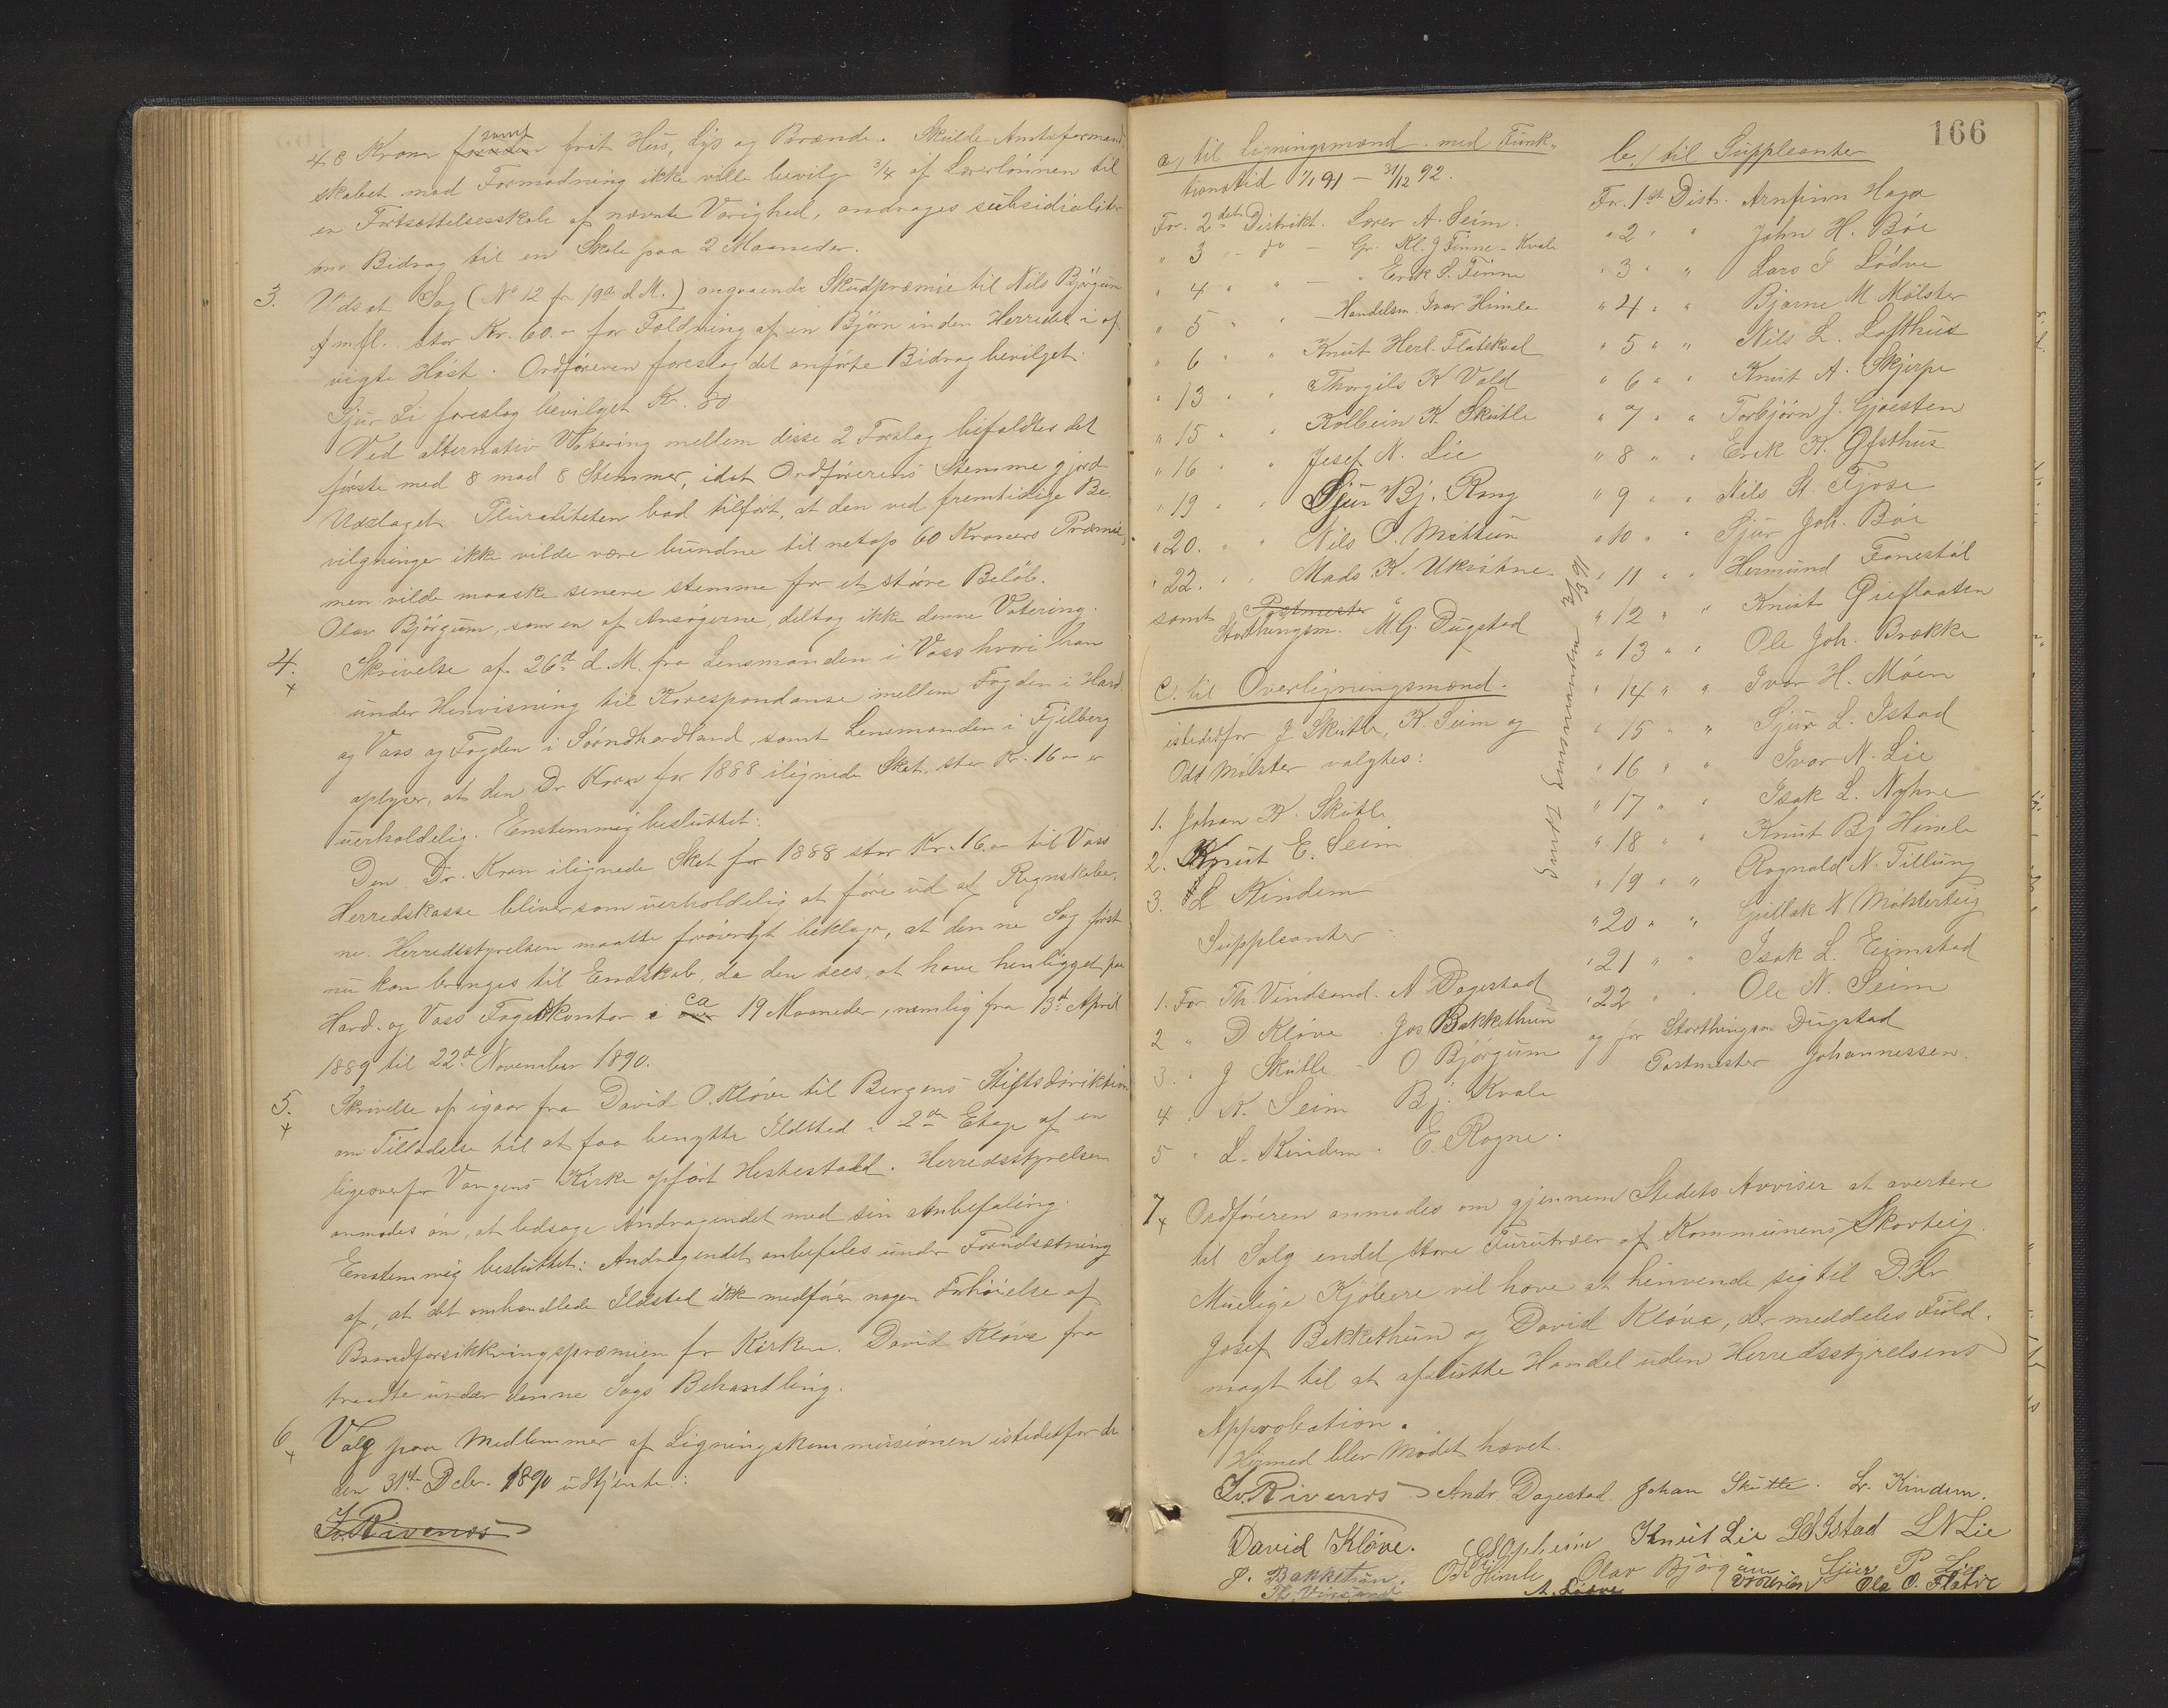 48 Kroner samt frit Hus, Lys og Brænde. Skulde Amtsformand-
skabet mod Formodning ikke ville bevilge 3/4 af Lærerlönnen til
en Fortsættelsesskole af nævnte Varighed, andrages subsidialiter
om Bidrag til en Skole paa 2 Maaneder.
3. Udsat Sag (No 12 fra 19de d.M.) angaaende Skudpræmie til Nils Björgum
m fl. stor Kr. 60.- for Fældning af en Björn inden Herredet i af-
vigte Höst. Ordföreren foreslog det anförte Bidrag bevilget.
Sjur Li foreslog bevilget Kr. 80
Ved alternativ Votering mellem disse 2 Forslag bifaldtes det
förste med 8 mod 8 Stemmer, idet Ordförerens Stemme gjord
Udslaget. Pluraliteten bad tilfört, at den ved fremtidige Be-
vilgninger ikke vilde være bundne til netop 60 Kroners Præmie,
men vilde maaske senere stemme for et större Belöb.
Olav Björgum, som en af Ansögerne, deltog ikke denne Votering.
4. Skrivelse af 26de d.M. fra Lensmanden i Voss hvori han
x
under Henvisning til Korespondanse mellem Fogden i Hard.
og Voss og Fogden i Söndhordland, samt Lensmanden i Fjelberg
oplyser, at den Dr Kron for 1888 ilignede Skat, stor Kr. 16 - er
uerholdelig. Enstemmig besluttet:
Den Dr. Kron ilignede Skat for 1888 stor Kr. 16.- til Voss
Herredskasse bliver som uerholdelig at före ud af Regnskaber-
ne. Herredsstyrelsen maatte forövrigt beklage, at denne Sag först
nu kan bringes til Endskab, da den sees at have henligget paa
Hard. og Voss Fogedkontor i ca 19 Maaneder, nemlig fra 13de April
1889 til 22de November 1890.
5. Skrivelse af igaar fra David O. Klöve til Bergens Stiftsdirektion
x
om Tilladelse til at faa benytte Ildsted i 2den Etage af en
ligeoverfor Vangens Kirke opfört Hestestald. Herredsstyrelsen
anmodes om, at ledsage Andragendet med sin Anbefaling.
Enstemmig besluttet: Andragendet anbefales under Forudsætning
af, at det omhandlede Ildsted ikke medförer nogen Forhöielse af
Brandforsikkringspræmien for Kirken. David Klöve fra
traadte under denne Sags Behandling.
6 Valg paa Medlemmer af Ligningskommissionen istedetfor de
x
den 31te Dcbr. 1890 udtjente:
Iv. Rivenes
166
a, til Ligningsmænd med Funk-
tionstid 1/1 91 - 31/12 92.
For. 2det Distrikt. Lærer A. Seim.
" 3 " do - Gr. Kl. J Finne - Kvale
" 4 " " - " Erik S. Finne
" 5 " " - Handelsm. Ivar Himle
" 6 " " Knut Herl. Flatekval
" 13 " " Thorgils K Vold
" 15 " " Kolbein K. Skutle
" 16 " " Josef N. Lie
" 19 " " Sjur Bj. Rong
" 20. " " Nils O. Mittun
" 22. " " Mads K. Ukvitne
samt Postmester
Storthingsm. M. G. Dugstad
C. til Overligningsmænd.
istedetfor J Skutle, K. Seim og
Odd Mölster valgtes:
1. Johan K. Skutle
2. Knut E. Seim
3. L Kindem
Suppleanter
1. For Th. Vindsand. A Dagestad
2 " D Klöve Jos Bakkethun
3. " J Skutle - O Björgum
4 " K. Seim Bj. Kvale
5 " L. Kindem. E. Rogne.
b./ til Suppleanter
For. 1st Distr. Arnfinn Haga
" 2 " " John H. Böe
" 3 " " Lars I Lödve
" 4 " " Bjarne M Mölster
" 5 " " Nils L. Lofthus
" 6 " " Knut A. Skjerpe
" 7 " " Torbjörn J. Gjøesten
" 8 " " Erik K. Ofsthus
" 9 " " Nils St. Tjose
" 10 " " Sjur Joh. Böe
" 11 " " Hermund Fonestøl
" 12 " " Knut
" 13 " " Ole Joh. Brække
" 14 " " Ivar H. Möen
" 15 " " Sjur L. Istad
" 16 " " Ivar N. Lie
" 17 " " Isak L. Nyhne
" 18 " " Knut Bj Himle
" 19 " " Ragnald N. Tillung
" 20 " " Gullak N Mölsterteig
" 21 " " Isak L. Eimstad
" 22 " " Ole N. Seim
og for Storthingsm Dugstad
Postmester Johannessen.
Sendt Lensmanden 3/3 91
7 Ordföreren anmodes om gjennem Stedets Aviser at avertere
x
til Salg endel store Furutræer af Kommunens Skovteig.
Muelige Kjöbere vil have at henvende sig til D.Hr
Josef Bakkethun og David Klöve, der meddeles Fuld-
magt til at afslutte Handel uden Herredsstyrelsens
Approbation.
Hermed blev Mödet hævet.
Iv. Rivenes Andr. Dagestad. Johan Skutle. L. Kindem.
David Klöve. Opheim Knut Lie Istad L N Lie
J. Bakketun. Himle Olav Björgum Sjur P. Lie
Th. Vinsand A. Lödve Ole O. Flatre